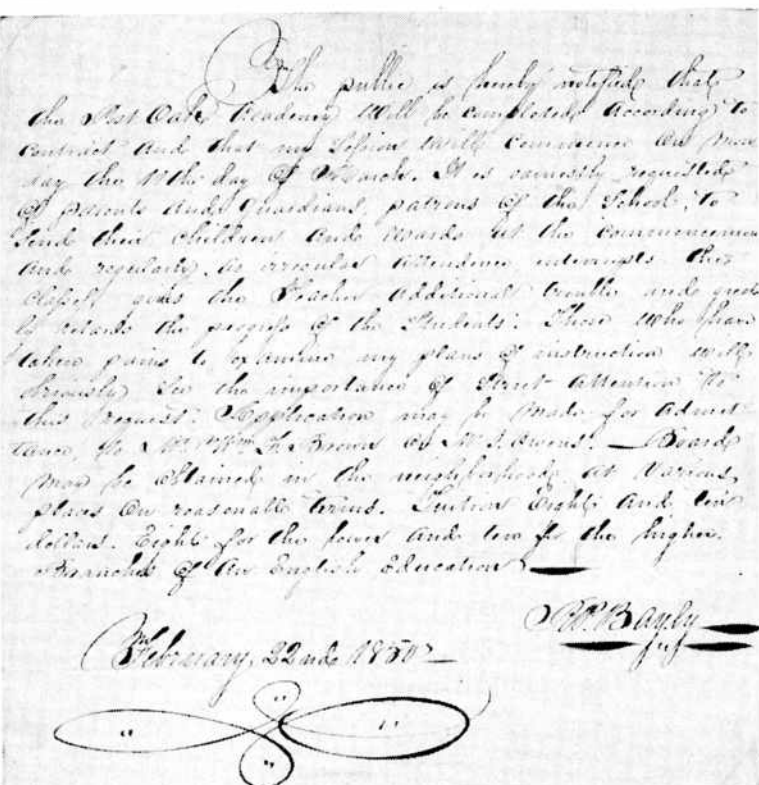 The public is hereby notified that
the Post Oak Academy will be completed According to
Contract And that my Session will Commence On Mon
day the 11th day Of March. It is earnestly requested
Of parents And guardians, patrons Of the School, to
Send their Children And wards at the Commencement
And regularly, as irregular Attendence interrupts the
Classes, gives the Teacher Additional trouble and great
ly retards the progress Of the Students. Those Who have
taken pains to examine my plans Of instruction will
Obviously See the importance Of Strict Attention to
this request. Application may be Made for Admit
tance, to Mr. Wm. H. Brown or Mr. S. Owens. — Board
May be Obtained in the neighborhood, at Various
places On reasonable Terms. Tuition Eight And ten
dollars. Eight for the lower And ten for the higher
Branches Of An English Education —
Bayly
February, 22nd 1850 —